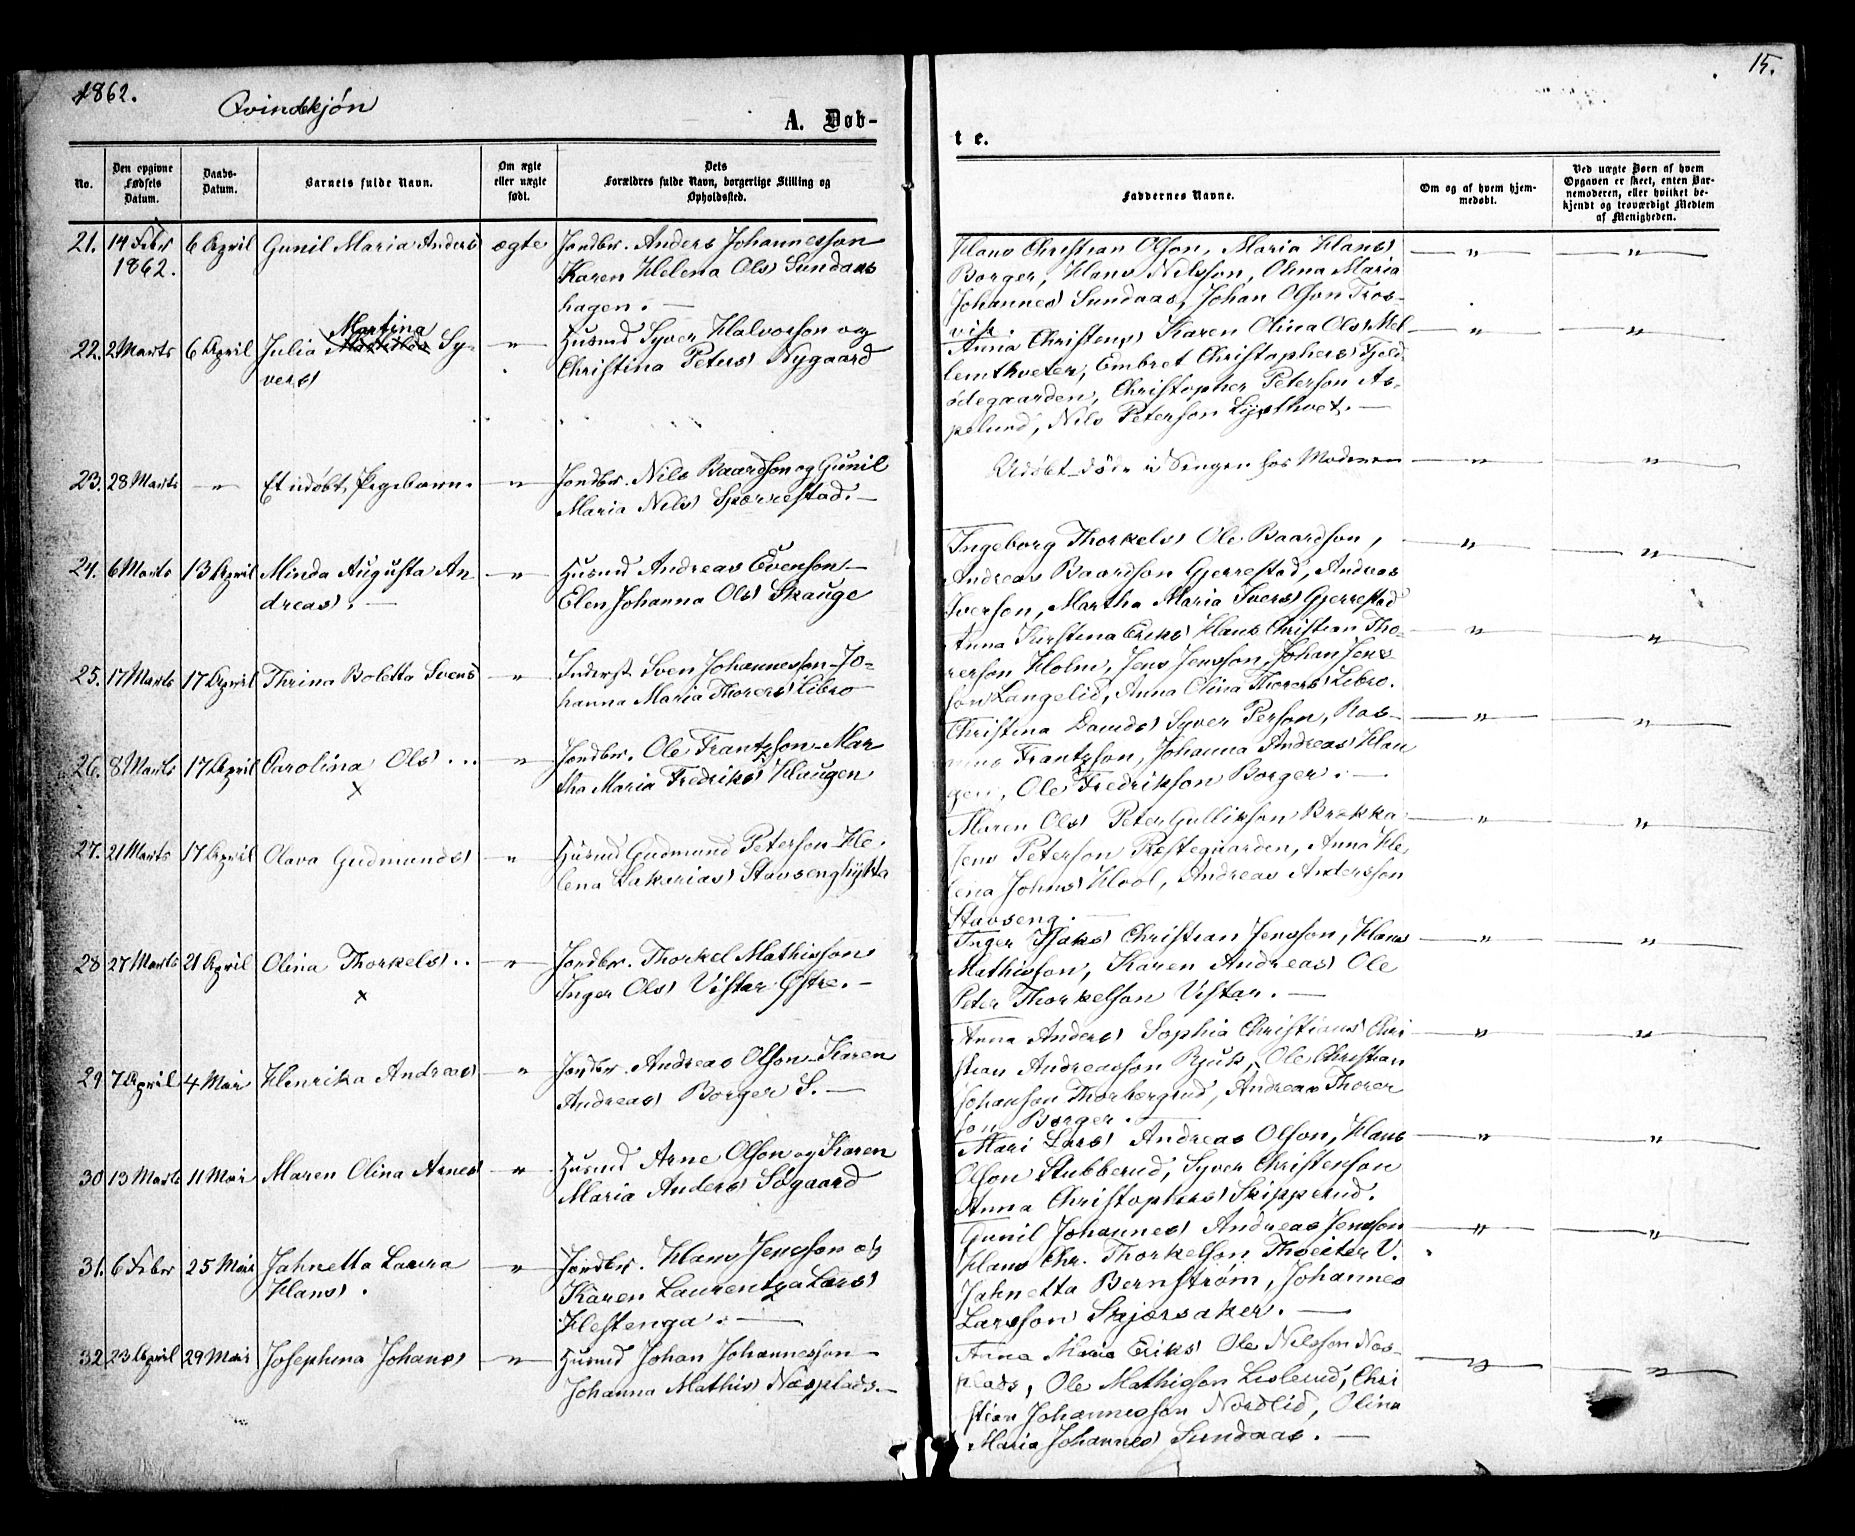 1862.
Qvindekjøn
15.
A. Døb-
t e.
No.
Den opgivne Fødsels Datum.
Daabs-Datum.
Barnets fulde Navn.
Om ægte eller uægte født.
Dets Forældres fulde Navn, borgerlige Stilling og Opholdssted.
Faddernes Navne.
Om og af hvem hjemmedøbt.
Ved uægte Børn af hvem Opgaven er skeet, enten Barnemoderen, eller hvilket bekjendt og troværdigt Medlem af Menigheden.
21. 14 Febr 6 April Gunil Maria Anders ægte Jordbr. Anders Johannesson
1862. Karen Helena Ols Sundaas
hagen. —
Hans Christian Olson, Maria Hans
Borger, Hans Nilsson, Olina Maria
Johannes Sundaas, Johan Olson Tros-
vik. —
22. 2 Marts 6 April Julia Martina Sy- " Husmd Syver Halvorson og
vers Christina Peters Nygaard
Anna Christens Karen Olina Ols Mel-
lemtkveter, Embret Christophers Fjeld
ødegaarden, Christopher Peterson As-
pelund, Nils Peterson Lysthvet. —
23. 28 Marts " Et udøbt Pigebarn. " Jordbr. Nils Baardson og Gunil
Maria Nils Spærrestad. —
Udøbt døde i Sengen hos Moderen
24. 6 Marts 13 April Minda Augusta An- " Husmd Andreas Evenson —
dreas. — Elen Johanna Ols Skauge
Ingeborg Thorkels Ole Baardson,
Andreas Baardson Gjerrestad, Andreas
Iverson, Martha Maria Ivers Gjerrestad
25. 17 Marts 17 April Thrina Boletta Svens " Inderst Sven Johannesson — Jo-
hanna Maria Thorers Libro
Anna Kirstina Eriks Hans Christian Tho-
rerson Holm, Jens Jensson, Johan Jens-
son Langelid, Anna Olina Thorers Libro.
26. 8 Marts 17 April Carolina Ols ... " Jordbr. Ole Frantzson — Mar
x tha Maria Fredriks Haugen
Christina Davids Syver Person, Ras-
mus Frantzson, Johanna Andreas Hau
gen, Ole Fredrikson Borger. —
27. 21 Marts 17 April Olava Gudmunds " Husmd Gudmund Peterson — He-
lena Zakarias Stavsenghytta
Maren Ols Peter Gullikson Brekka
Jens Peterson Præstegaarden, Anna He-
lena Johns Hool, Andreas Andersson
Stavseng. —
28 27 Marts 21 April Olina Thorkels .. " Jordbr. Thorkel Mathisson
x Inger Ols Vistar Østre. —
Inger Isaks Christian Jensson, Hans
Mathisson, Karen Andreas Ole
Peter Thorkelson Vistar. —
29 7 April 4 Mai Henrika Andreas " Jordbr. Andreas Olson — Karen
Andreas Borger S. —
Anna Anders Sophia Christians Chri
stian Andreasson Bjuk, Ole Christian
Johanson Thorbergrud, Andreas Thorer
son Borger. —
30 13 Marts 11 Mai Maren Olina Arnes " Husmd Arne Olson og Karen
Maria Anders Søgaard
Mari Lars Andreas Olson, Hans
Olson Stubberud, Syver Christenson
Anna Christophers Skipperud.
31. 6 Febr 25 Mai Jahnetta Laura " Jordbr. Hans Jensson og
Hans. Karen Laurentza Lars
Hestenga. —
Gunil Johannes Andreas Jensson
Hans Chr. Thorkelson Thveiter V.
Jahnetta Bernstrøm, Johannes
Larsson Skjørsaker. —
32 23 April 29 Mai Josephina Johans " Husmd Johan Johannesson —
Johanna Mathis Næsplads. —
Anna Maria Eriks Ole Nilsson Næs-
plads, Ole Mathisson Leslerud, Chri
stian Johannesson Nordlid, Olina
Maria Johannes Sundaas. —